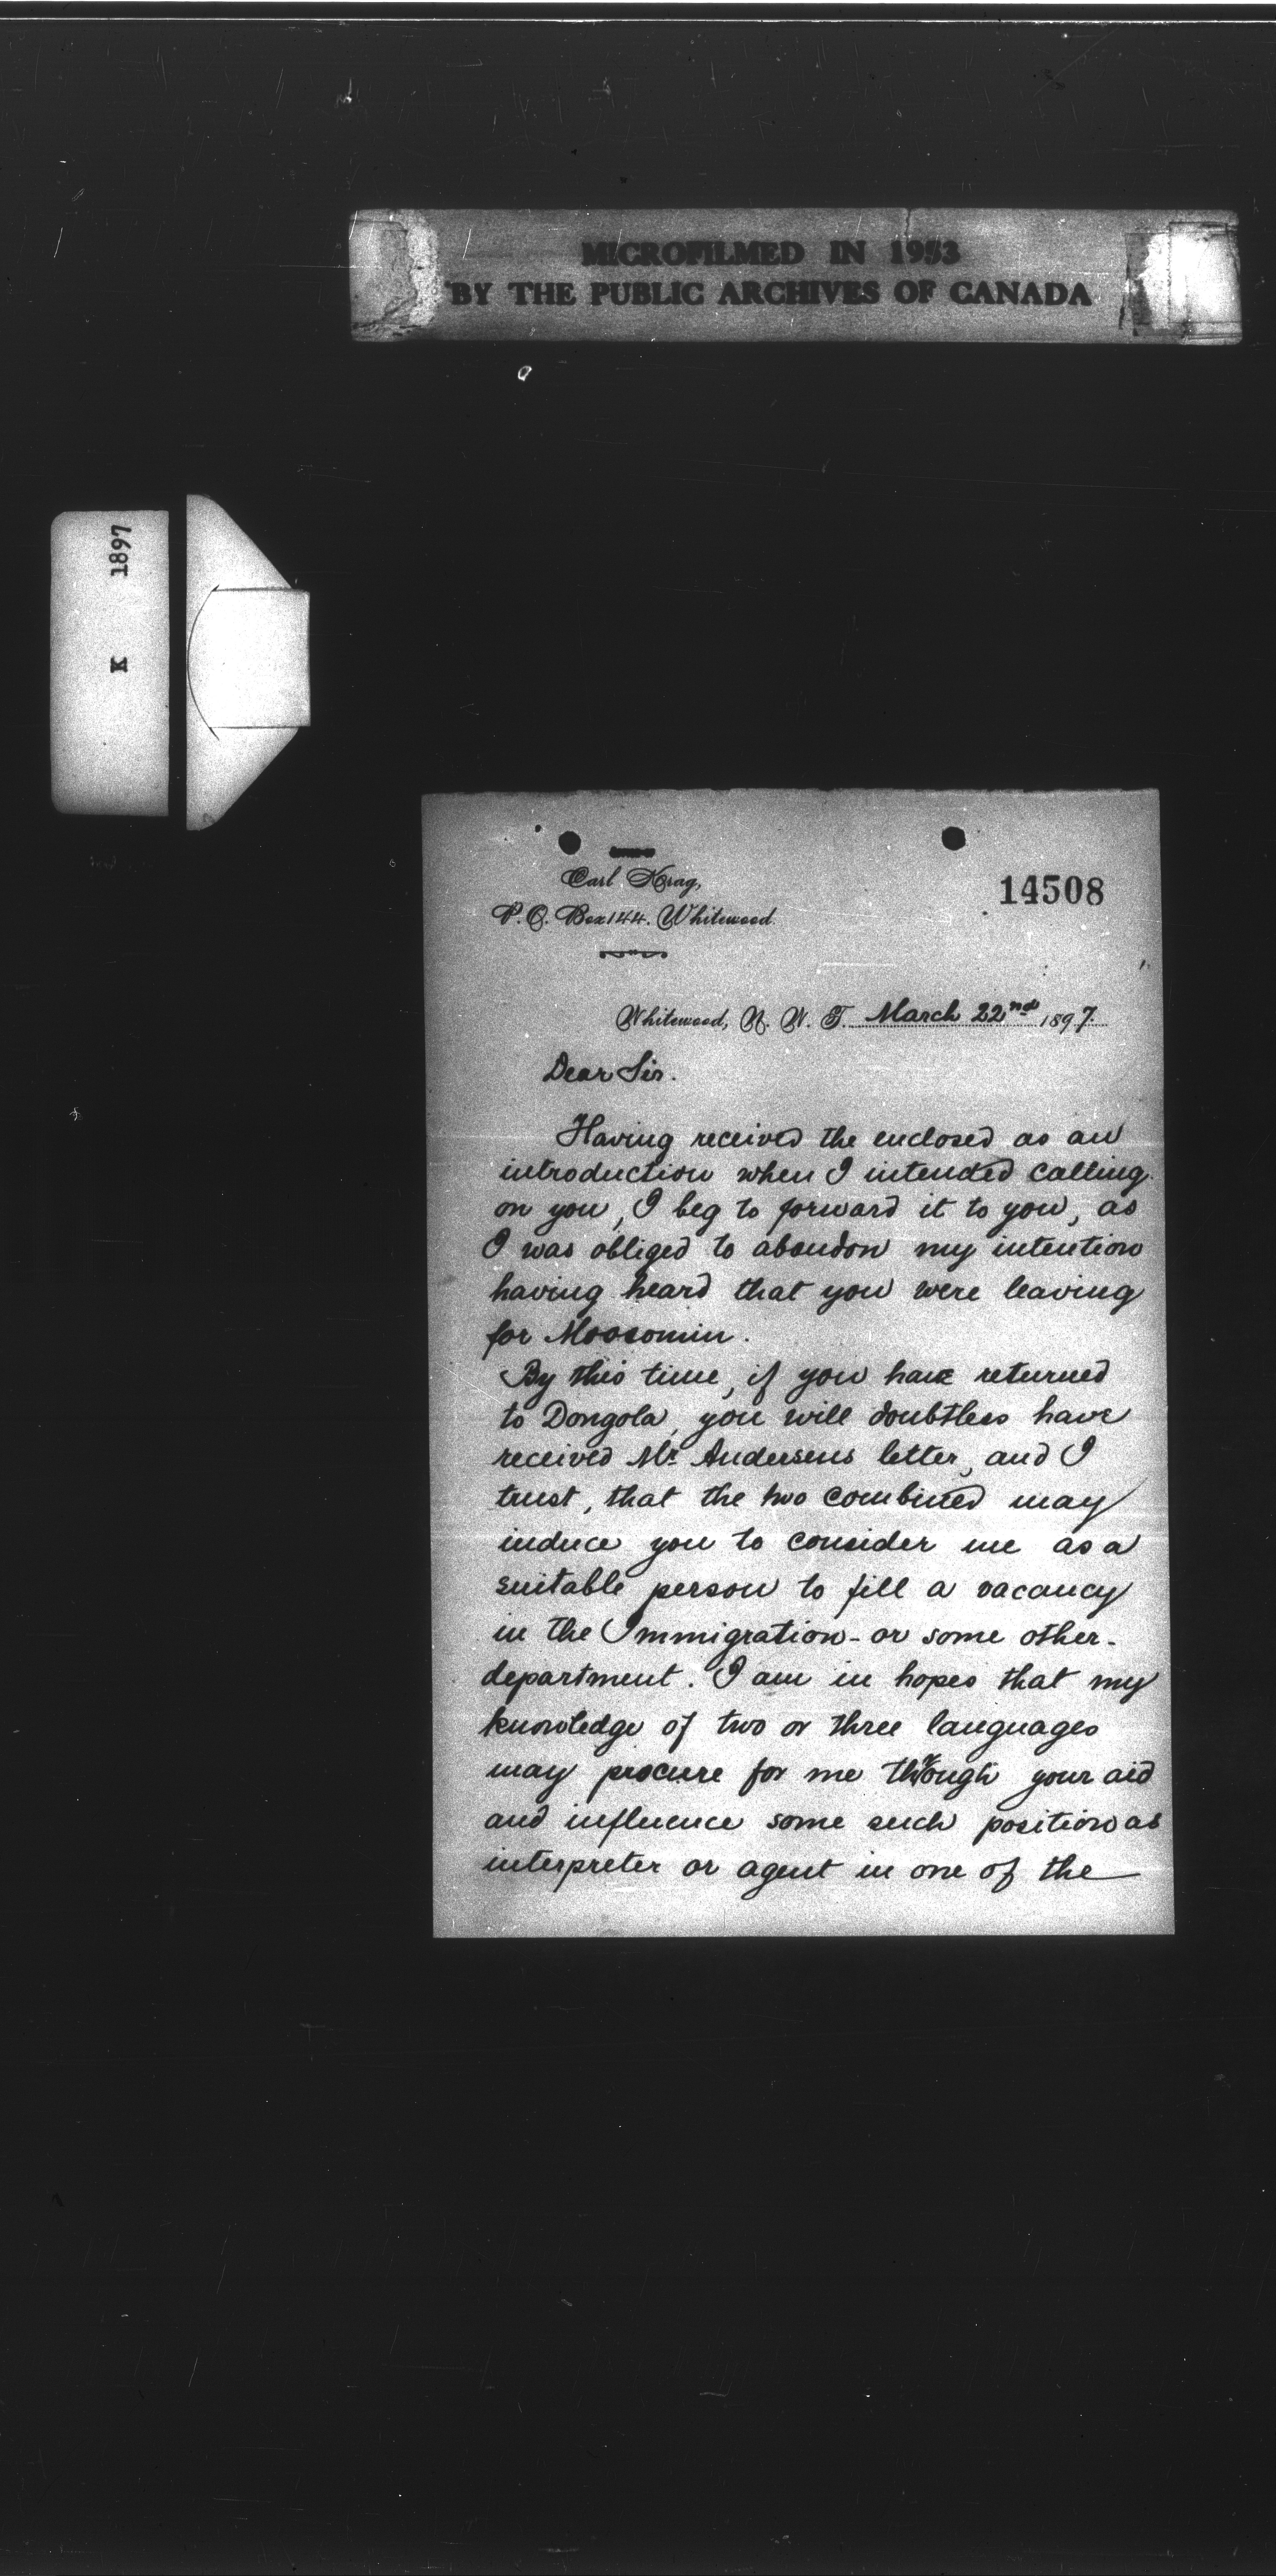 MICROFILMED IN 1953
BY THE PUBLIC ARCHIVES OF CANADA
K 1897
Carl Krag,
P.O. Box 144. Whitewood.
14508
Whitewood, N. W. T. March 22nd 1897.
Dear Sir.
Having received the enclosed as an
introduction when I intended calling
on you, I beg to forward it to you, as
I was obliged to abandon my intention
having heard that you were leaving
for Moosomin.
By this time, if you have returned
to Dongola, you will doubtless have
received Mr. Andersens letter, and I
trust, that the two combined may
induce you to consider me as a
suitable person to fill a vacancy
in the Immigration - or some other -
department. I am in hopes that my
knowledge of two or three languages
may procure for me through your aid
and influence some such position as
interpreter or agent in one of the